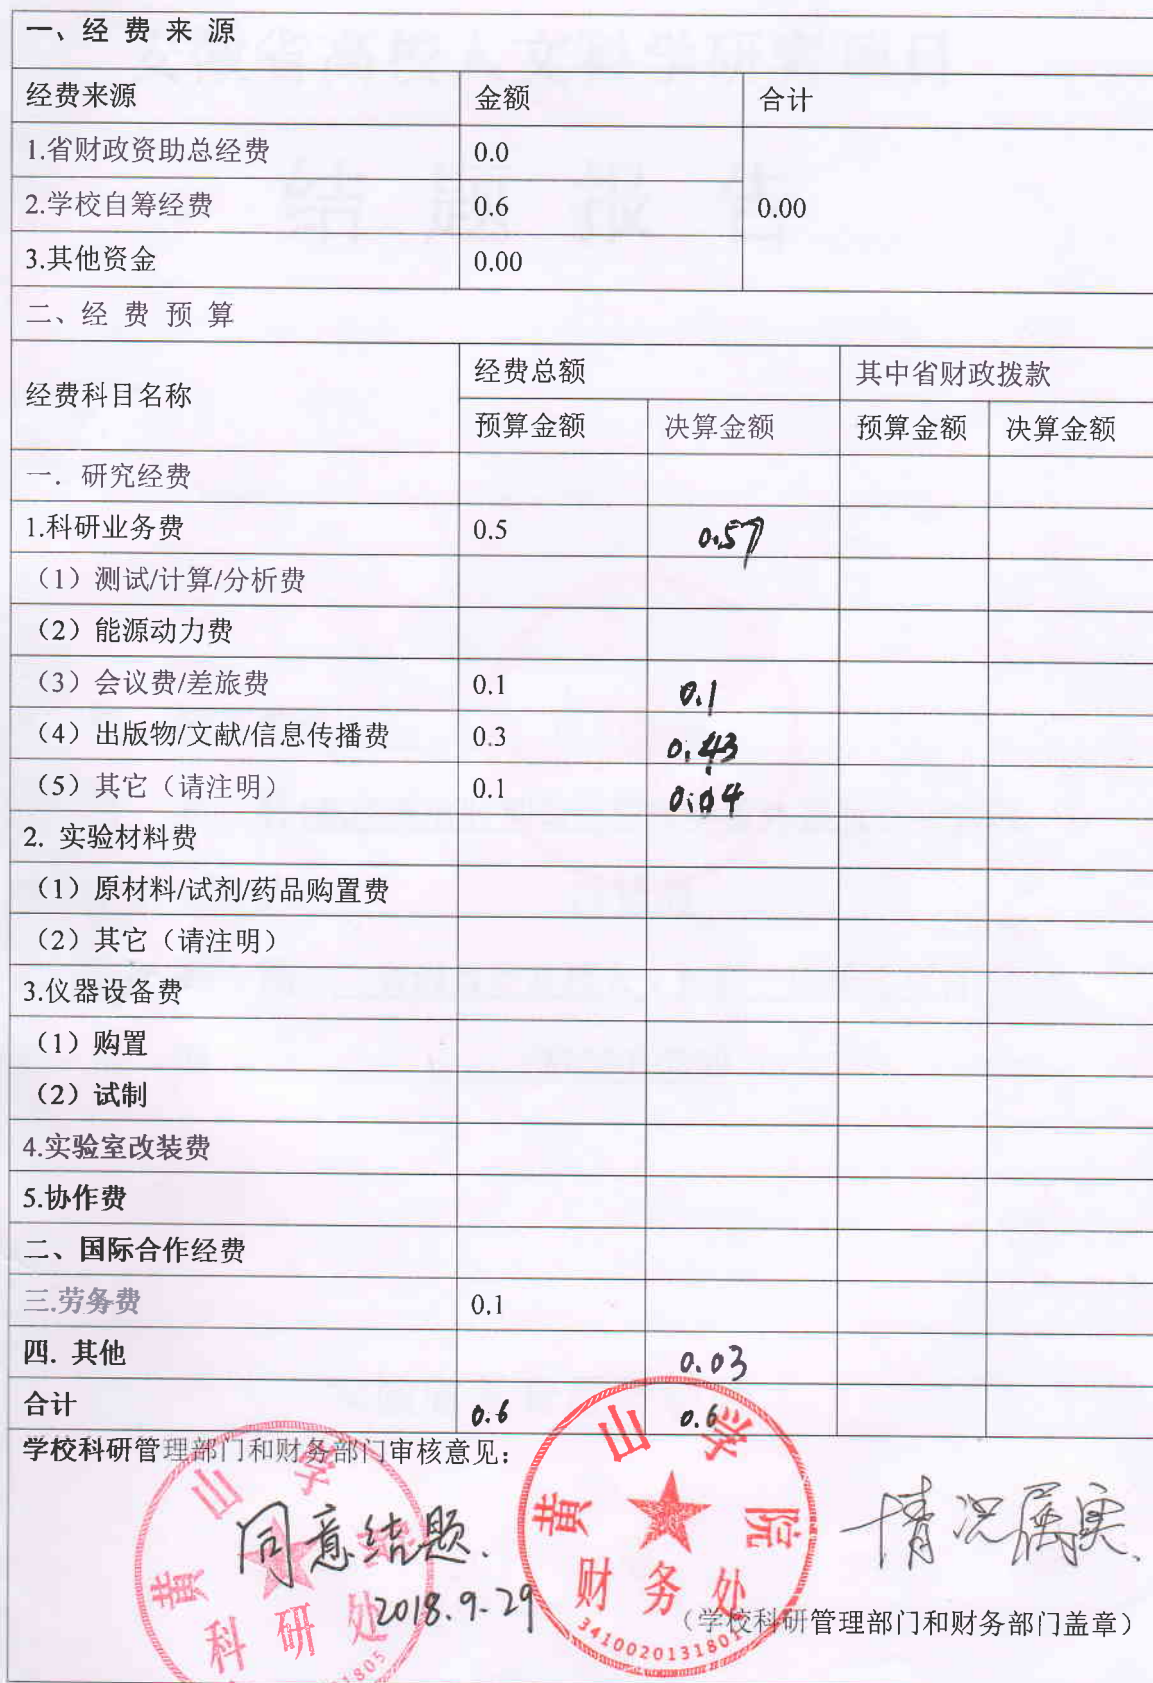 一、经 费 来 源
经费来源 金额 合计
1.省财政资助总经费 0.0
2.学校自筹经费 0.6 0.00
3.其他资金 0.00
二、经 费 预 算
经费科目名称 经费总额 其中省财政拨款
预算金额 决算金额 预算金额 决算金额
一. 研究经费
1.科研业务费 0.5 0.57
（1）测试/计算/分析费
（2）能源动力费
（3）会议费/差旅费 0.1 0.1
（4）出版物/文献/信息传播费 0.3 0.43
（5）其它（请注明） 0.1 0.04
2. 实验材料费
（1）原材料/试剂/药品购置费
（2）其它（请注明）
3.仪器设备费
（1）购置
（2）试制
4.实验室改装费
5.协作费
二、国际合作经费
三.劳务费 0.1
四. 其他 0.03
合计 0.6 0.6
学校科研管理部门和财务部门审核意见：
同意结题.
2018.9.29
情况属实.
黄山学院
科研处
黄山学院
财务处
（学校科研管理部门和财务部门盖章）